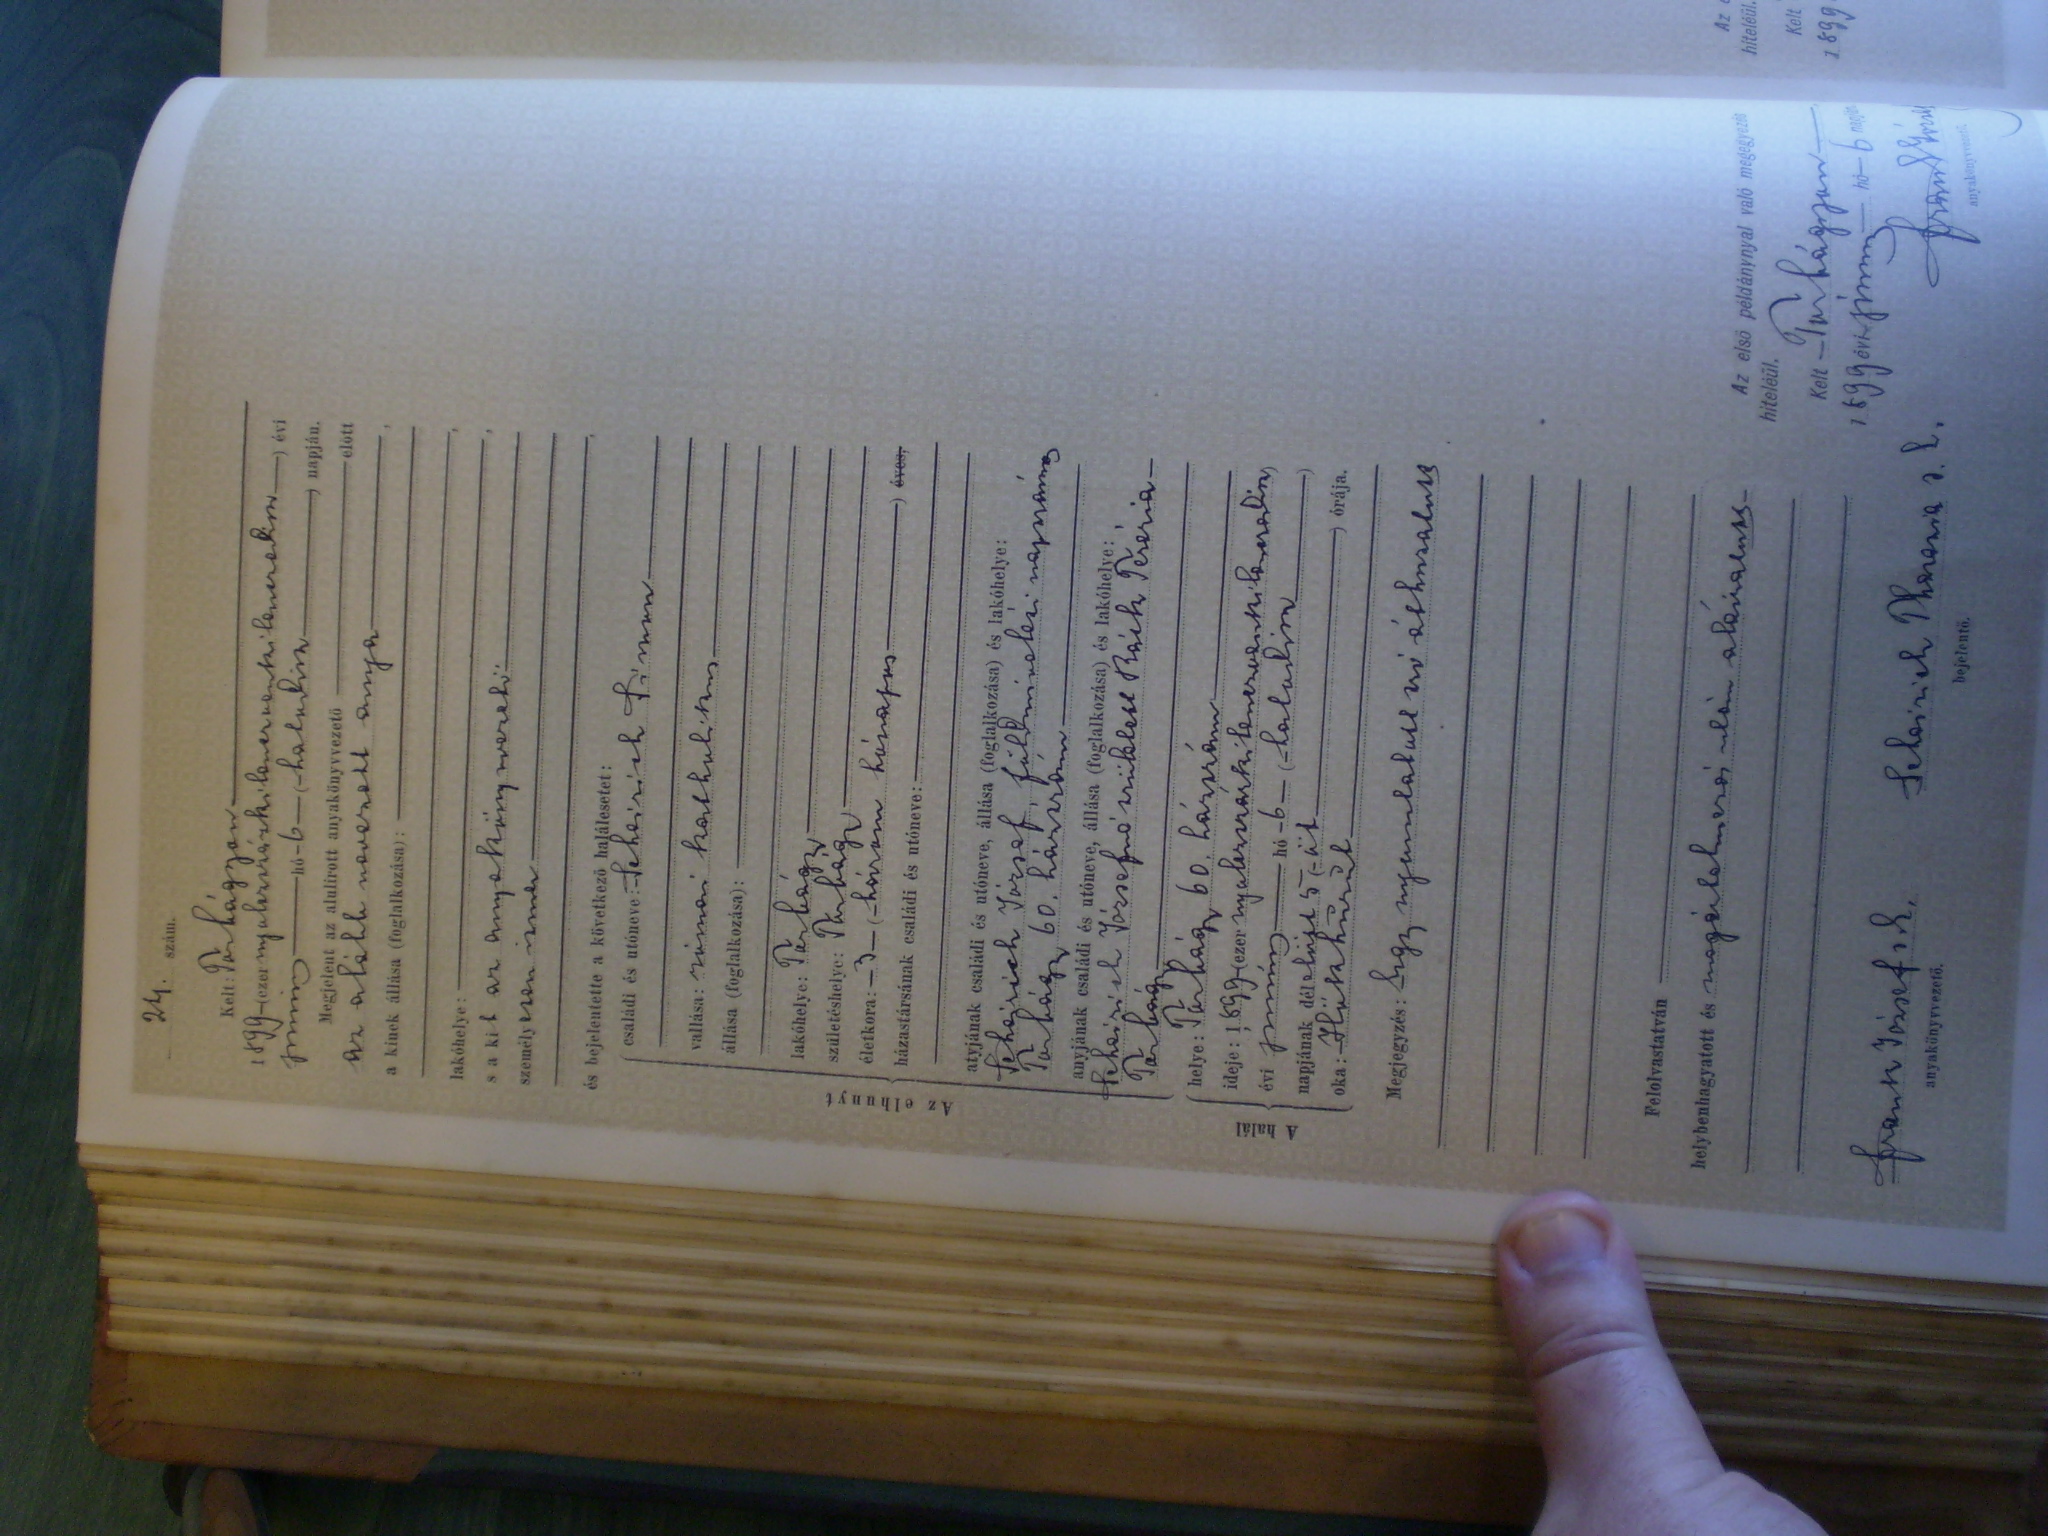 24. szám.
Kelt Párhágyon
1899 (ezernyolczszázkilenczvenkilenczedik) évi
június hó 6 (hatodik) napján.
Megjelent az alulirott anyakönyvvezető előtt
az alább nevezett anya
a kinek állása (foglalkozása):
lakóhelye:
s a kit az anyakönyvvezető
személyesen ismer
és bejelentette a következő halálesetet:
Az elhunyt
családi és utóneve:
vallása: római katholikus
állása (foglalkozása):
lakóhelye: Párhágy
születéshelye: Párhágy
életkora: 3 (három hónapos) éves,
házastársának családi és utóneve:
atyjának családi és utóneve, állása (foglalkozása) és lakóhelye:
József, földmívelési napszámos
Párhágy 60. házszám
anyjának családi és utóneve, állása (foglalkozása) és lakóhelye:
Józsefné született Terézia
Párhágy
A halál
helye: Párhágy 60. házszám
ideje: 1899 (ezernyolczszázkilenczvenkilenczedik)
évi június hó 6 (hatodik)
napjának délelőtt 5 (öt) órája.
oka:
Megjegyzés: Egy nyomtatott szó áthuzatott
Felolvastatván
helybenhagyatott és aláíratott
Frank József s. k.
anyakönyvvezető.
s. k.
bejelentő.
Az első példánynyal való megegyezés
hiteléül.
Kelt Párhágyon
1899 évi június hó 6 napján
Frank
anyakönyvvezető.
hiteléül.
Kelt
1899